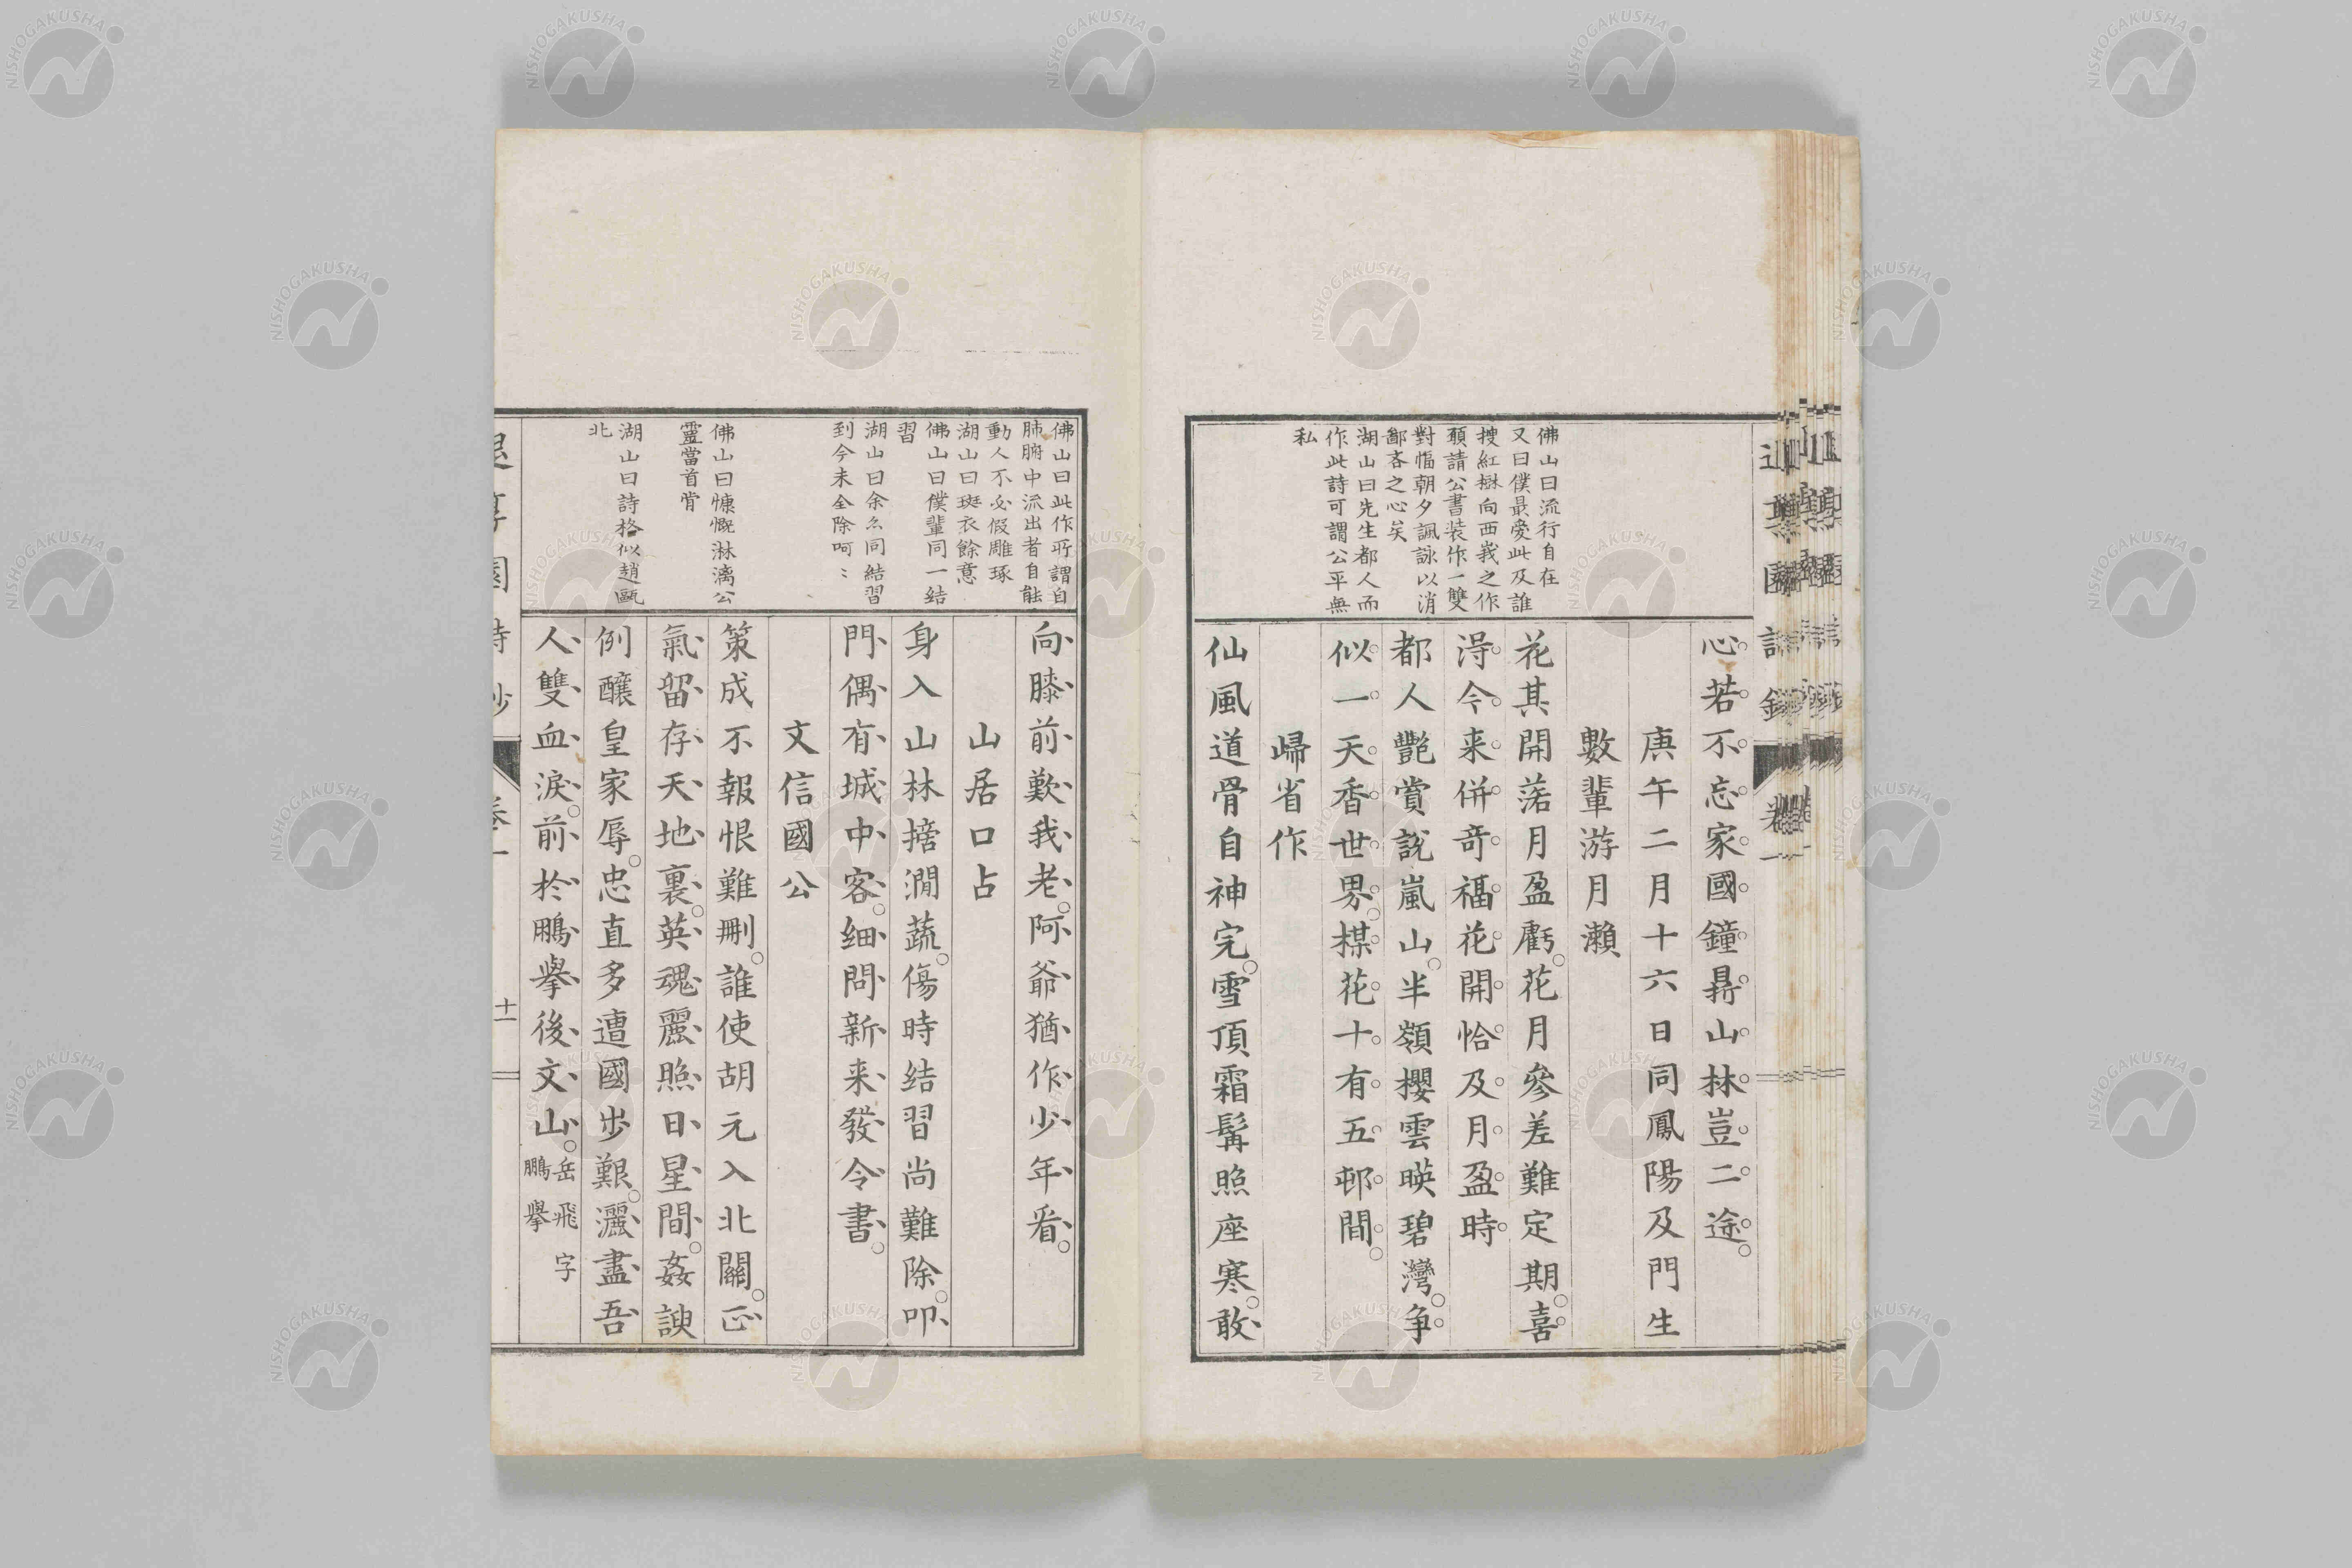 佛山曰流行自在
又曰僕最愛此及誰
捜紅樹向西峩之作
頿請公書装作一雙
對幅朝夕諷詠以消
鄙吝之心矣
湖山曰先生都人而
作此詩可謂公平無
私
心若不忘家國鐘鼎山林豈二途
庚午二月十六日同鳳陽及門生
數輩游月瀬
花其開落月盈虧花月參差難定期喜
淂今来併竒福花開恰及月盈時
都人艷賞說嵐山半嶺櫻雲暎碧灣争
似一天香世界楳花十有五邨間
歸省作
仙風道骨自神完雪頂霜髯照座寒敢
佛山曰此作所謂自
肺腑中流出者自能
動人不必假雕琢
湖山曰斑衣餘意
佛山曰僕輩同一结
習
湖山曰余亦同結習
到今未全除呵〻
佛山曰慷慨淋漓公
靈當首肯
湖山曰詩格似趙甌
北
向膝前歎我老阿爺猶作少年看
山居口占
身入山林擔澗蔬傷時结習尚難除叩
門偶有城中客细問新来發令書
文信國公
策成不報恨難刪誰使胡元入北關正
氣留存天地裏英魂麗照日星間姦諛
例釀皇家辱忠直多遭國步艱灑盡吾
人雙血淚前於鵬擧後文山岳飛字鵬擧
十一
NISHOGAKUSHA